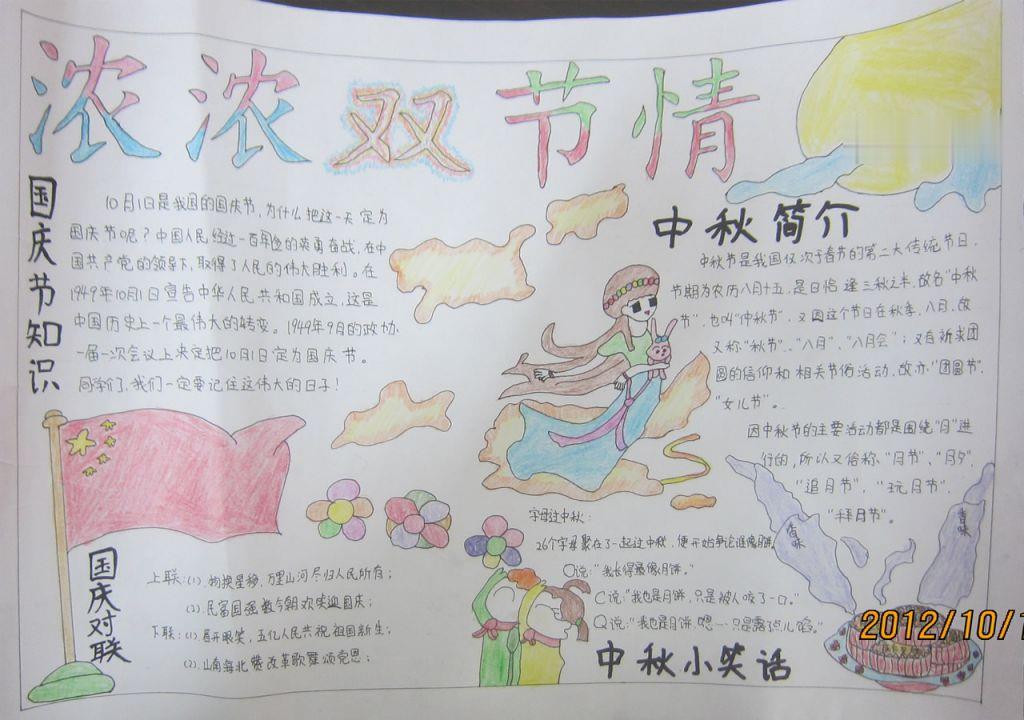 浓浓双节情
国庆节知识
10月1日是我国的国庆节,为什么把这一天定为
国庆节呢?中国人民经过一百年的英勇奋战,在中
国共产党的领导下,取得了人民的伟大胜利。在
1949年10月1日宣告中华人民共和国成立,这是
中国历史上一个最伟大的转变。1949年9月的政协
一届一次会议上决定把10月1日定为国庆节。
同学们,我们一定要记住这伟大的日子!
中秋简介
中秋节是我国仅次于春节的第二大传统节日,
节期为农历八月十五,是日恰逢三秋之半,故名"中秋
节",也叫"仲秋节",又因这个节日在秋季,八月,故
又称"秋节"、"八月"、"八月会";又有祈求团
圆的信仰和相关节俗活动,故亦"团圆节"、
"女儿节"。
因中秋节的主要活动都是围绕"月"进
行的,所以又俗称"月节"、"月夕"、
"追月节"、"玩月节"、
"拜月节"。
国庆对联
上联:(1).物换星移,万里山河尽归人民所有;
(2).民富国强数今朝欢庆迎国庆;
下联:(1).眉开眼笑,五亿人民共祝祖国新生;
(2).山南海北赞改革歌舞颂党恩;
字母过中秋:
26个字母聚在了一起过中秋,便开始争论谁像月饼。
O说:"我长得最像月饼。"
C说:"我也是月饼,只是被人咬了一口。"
Q说:"我也是月饼,嗯…只是露点儿馅。"
中秋小笑话
香味
香味
2012/10/1